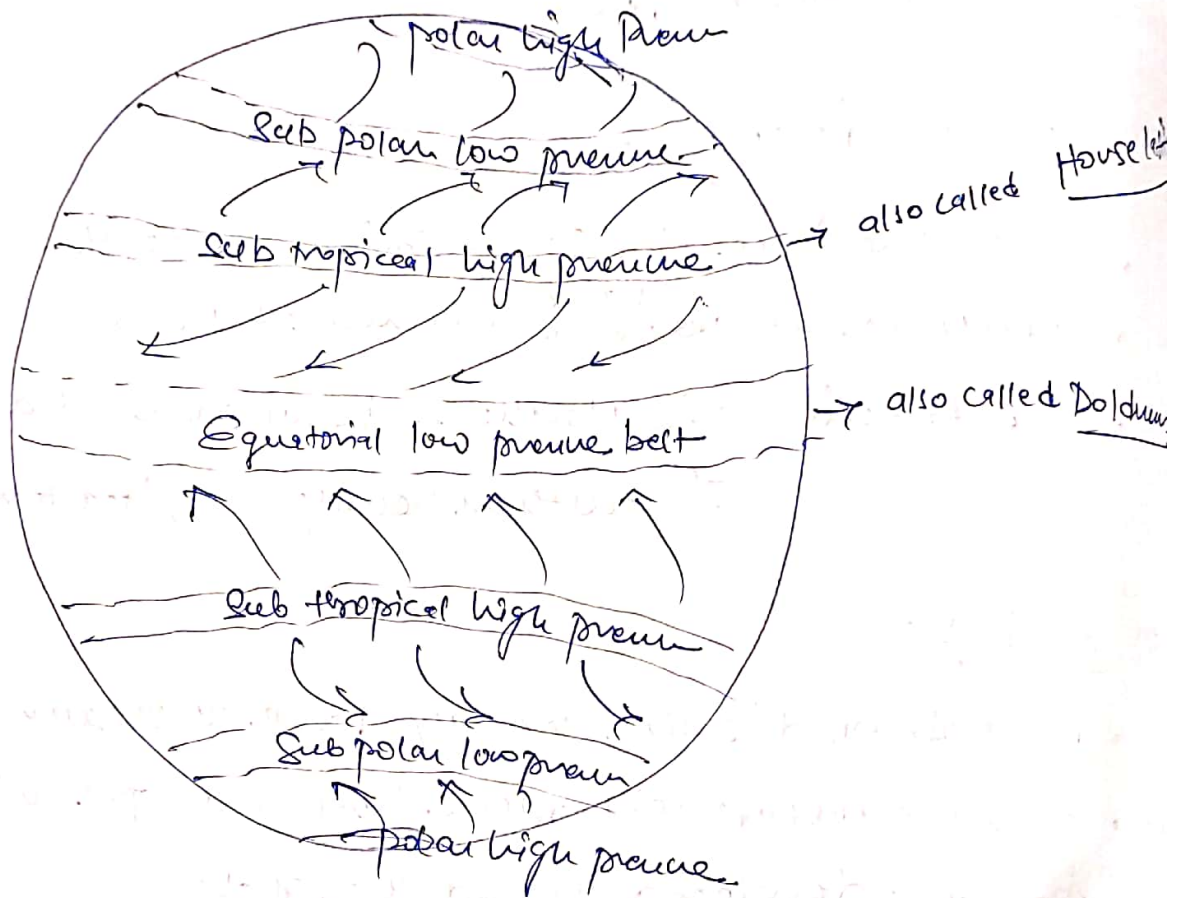 polar high Pressure
Sub polar low pressure
Sub tropiceal high pressure
→ also called House lat
Equatorial low pressure belt
→ also called Doldrum
Sub thropical high pressure
Sub polar low pressure
polar high pressure